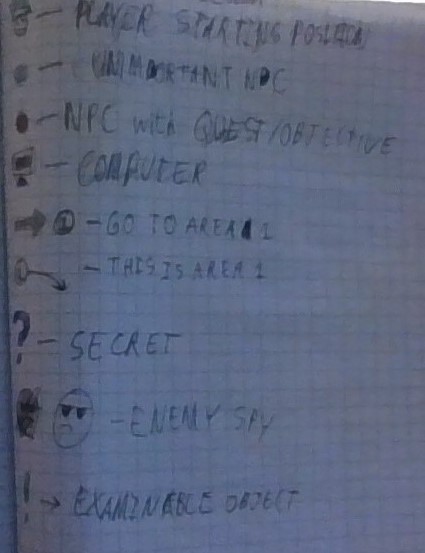 — PLAYER STARTING POSITION
— UNIMPORTANT NPC
— NPC with QUEST/OBJECTIVE
— COMPUTER
→ ① — GO TO AREA 1
— THIS IS AREA 1
? — SECRET
— ENEMY SPY
! → EXAMINABLE OBJECT